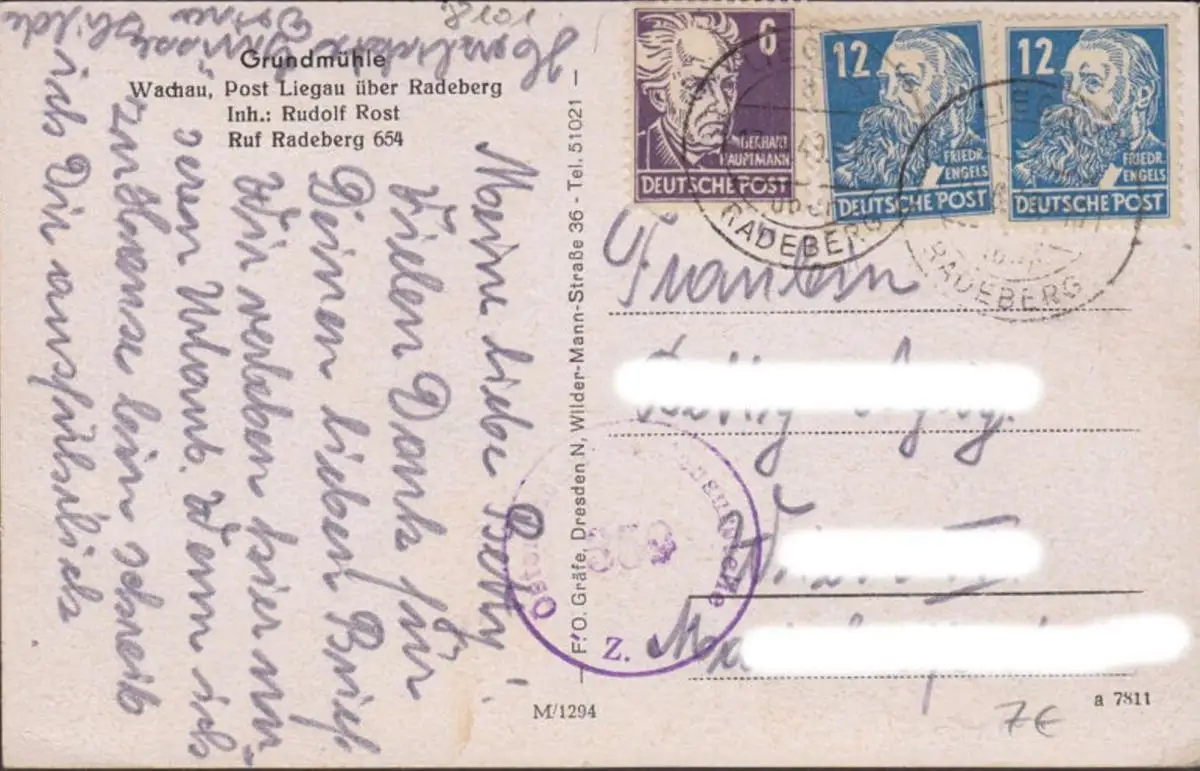 8101
Grundmühle
Wachau, Post Liegau über Radeberg
Inh.: Rudolf Rost
Ruf Radeberg 654
Meine liebe Betty!
Vielen Dank für
Deinen lieben Brief.
Wir verleben hier un-
seren Urlaub. Wenn ich
zuhause bin schreib
ich Dir ausführlich
Herzlichste Grüsse
Deine Hilde
F. O. Gräfe, Dresden N, Wilder-Mann-Straße 36 - Tel. 51021 —
M/1294
6
GERHART
HAUPTMANN
DEUTSCHE POST
12
FRIEDR.
ENGELS
DEUTSCHE POST
12
FRIEDR.
ENGELS
DEUTSCHE POST
LIEGAU
RADEBERG
LIEGAU
RADEBERG
Fräulein
Z.
a 7811
7€